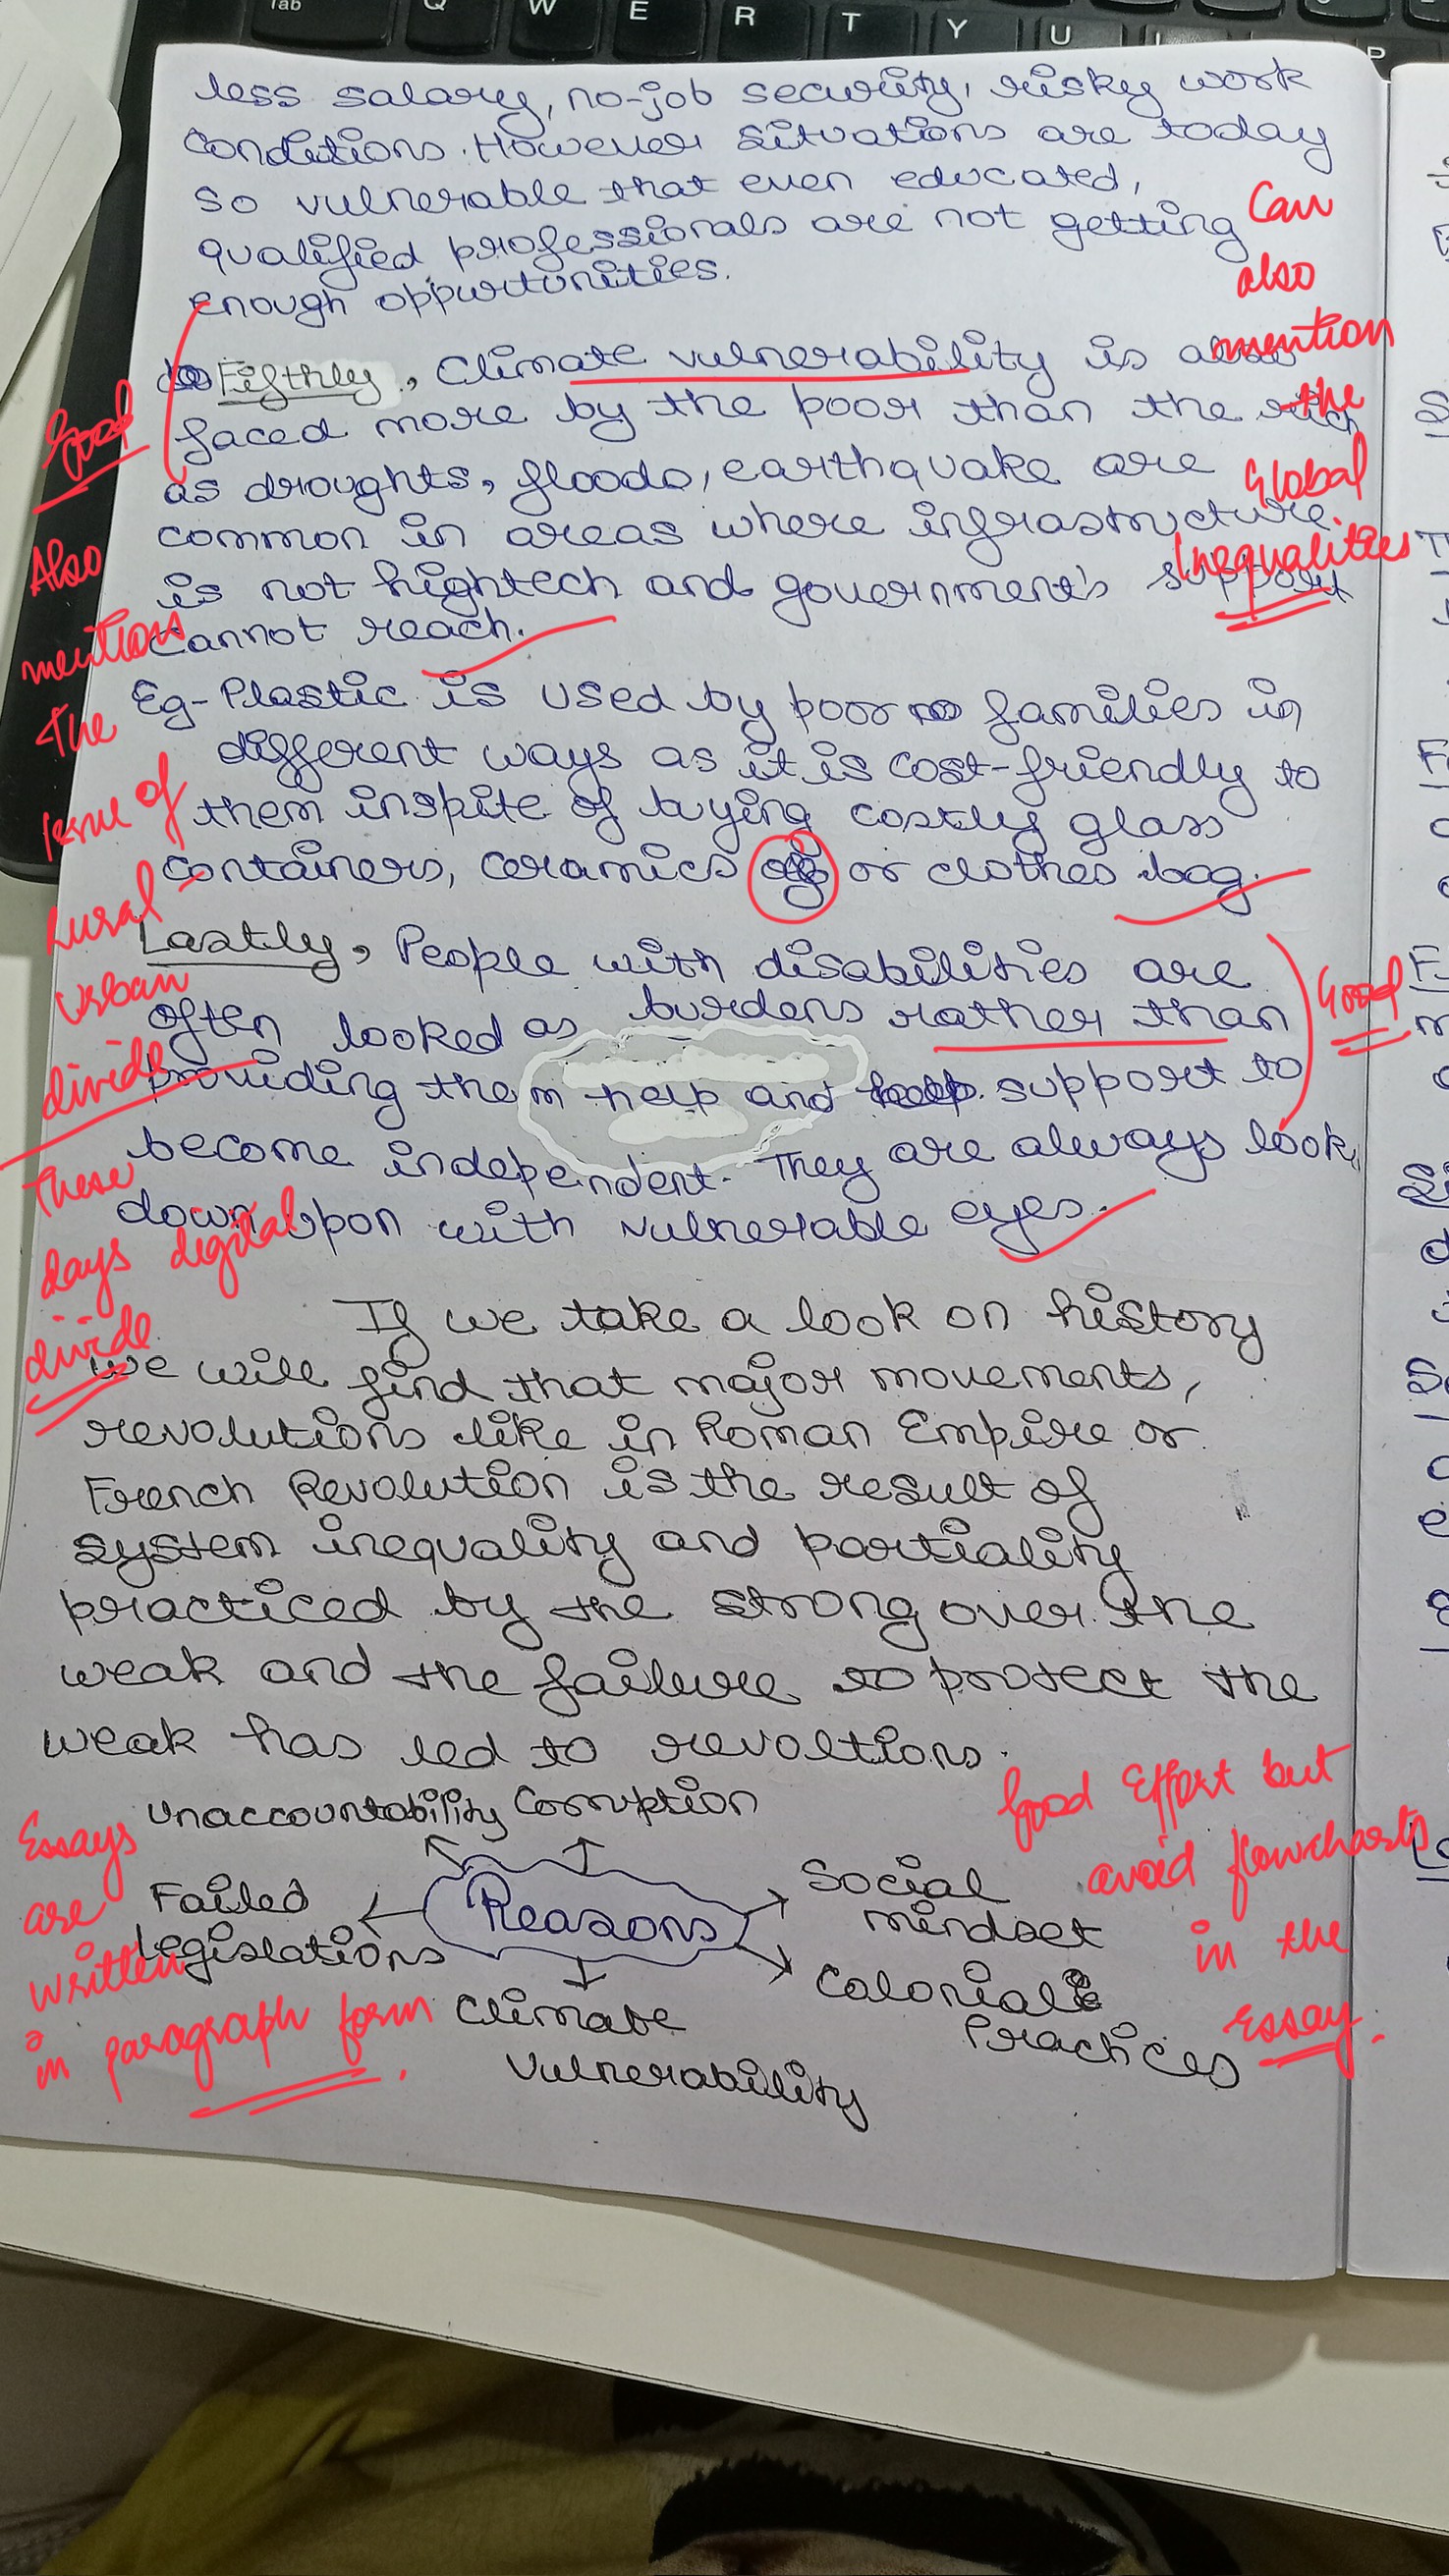 Tab Q W E R T Y U
less salary, no-job security, risky work
conditions. However situations are today
so vulnerable that even educated,
qualified professionals are not getting
enough oppurtunities.
Can
also
mention
the
Global
Inequalities
Fifthly, Climate vulnerability is also
faced more by the poor than the rich
as droughts, floods, earthquake are
common in areas where infrastructure
is not hightech and government's support
cannot reach.
Good
Also
mention
the
issue of
rural
urban
divide
These
days digital
divide
Eg- Plastic is used by poor families in
different ways as it is cost-friendly to
them inspite of buying costly glass
containers, ceramics or clothes bag.
Lastly, People with disabilities are
often looked as burdens rather than
providing them help and support to
become independent. They are always look
down upon with vulnerable eyes.
Good
If we take a look on history
we will find that major movements,
revolutions like in Roman Empire or
French Revolution is the result of
system inequality and partiality
practiced by the strong over the
weak and the failure to protect the
weak has led to revoltions.
Unaccountability Corruption
Failed
Legislations
Reasons
Social
mindset
Colonial
Practices
Climate
Vulnerability
Essays
are
written
in paragraph form.
Good Effort but
avoid flowcharts
in the
Essay.